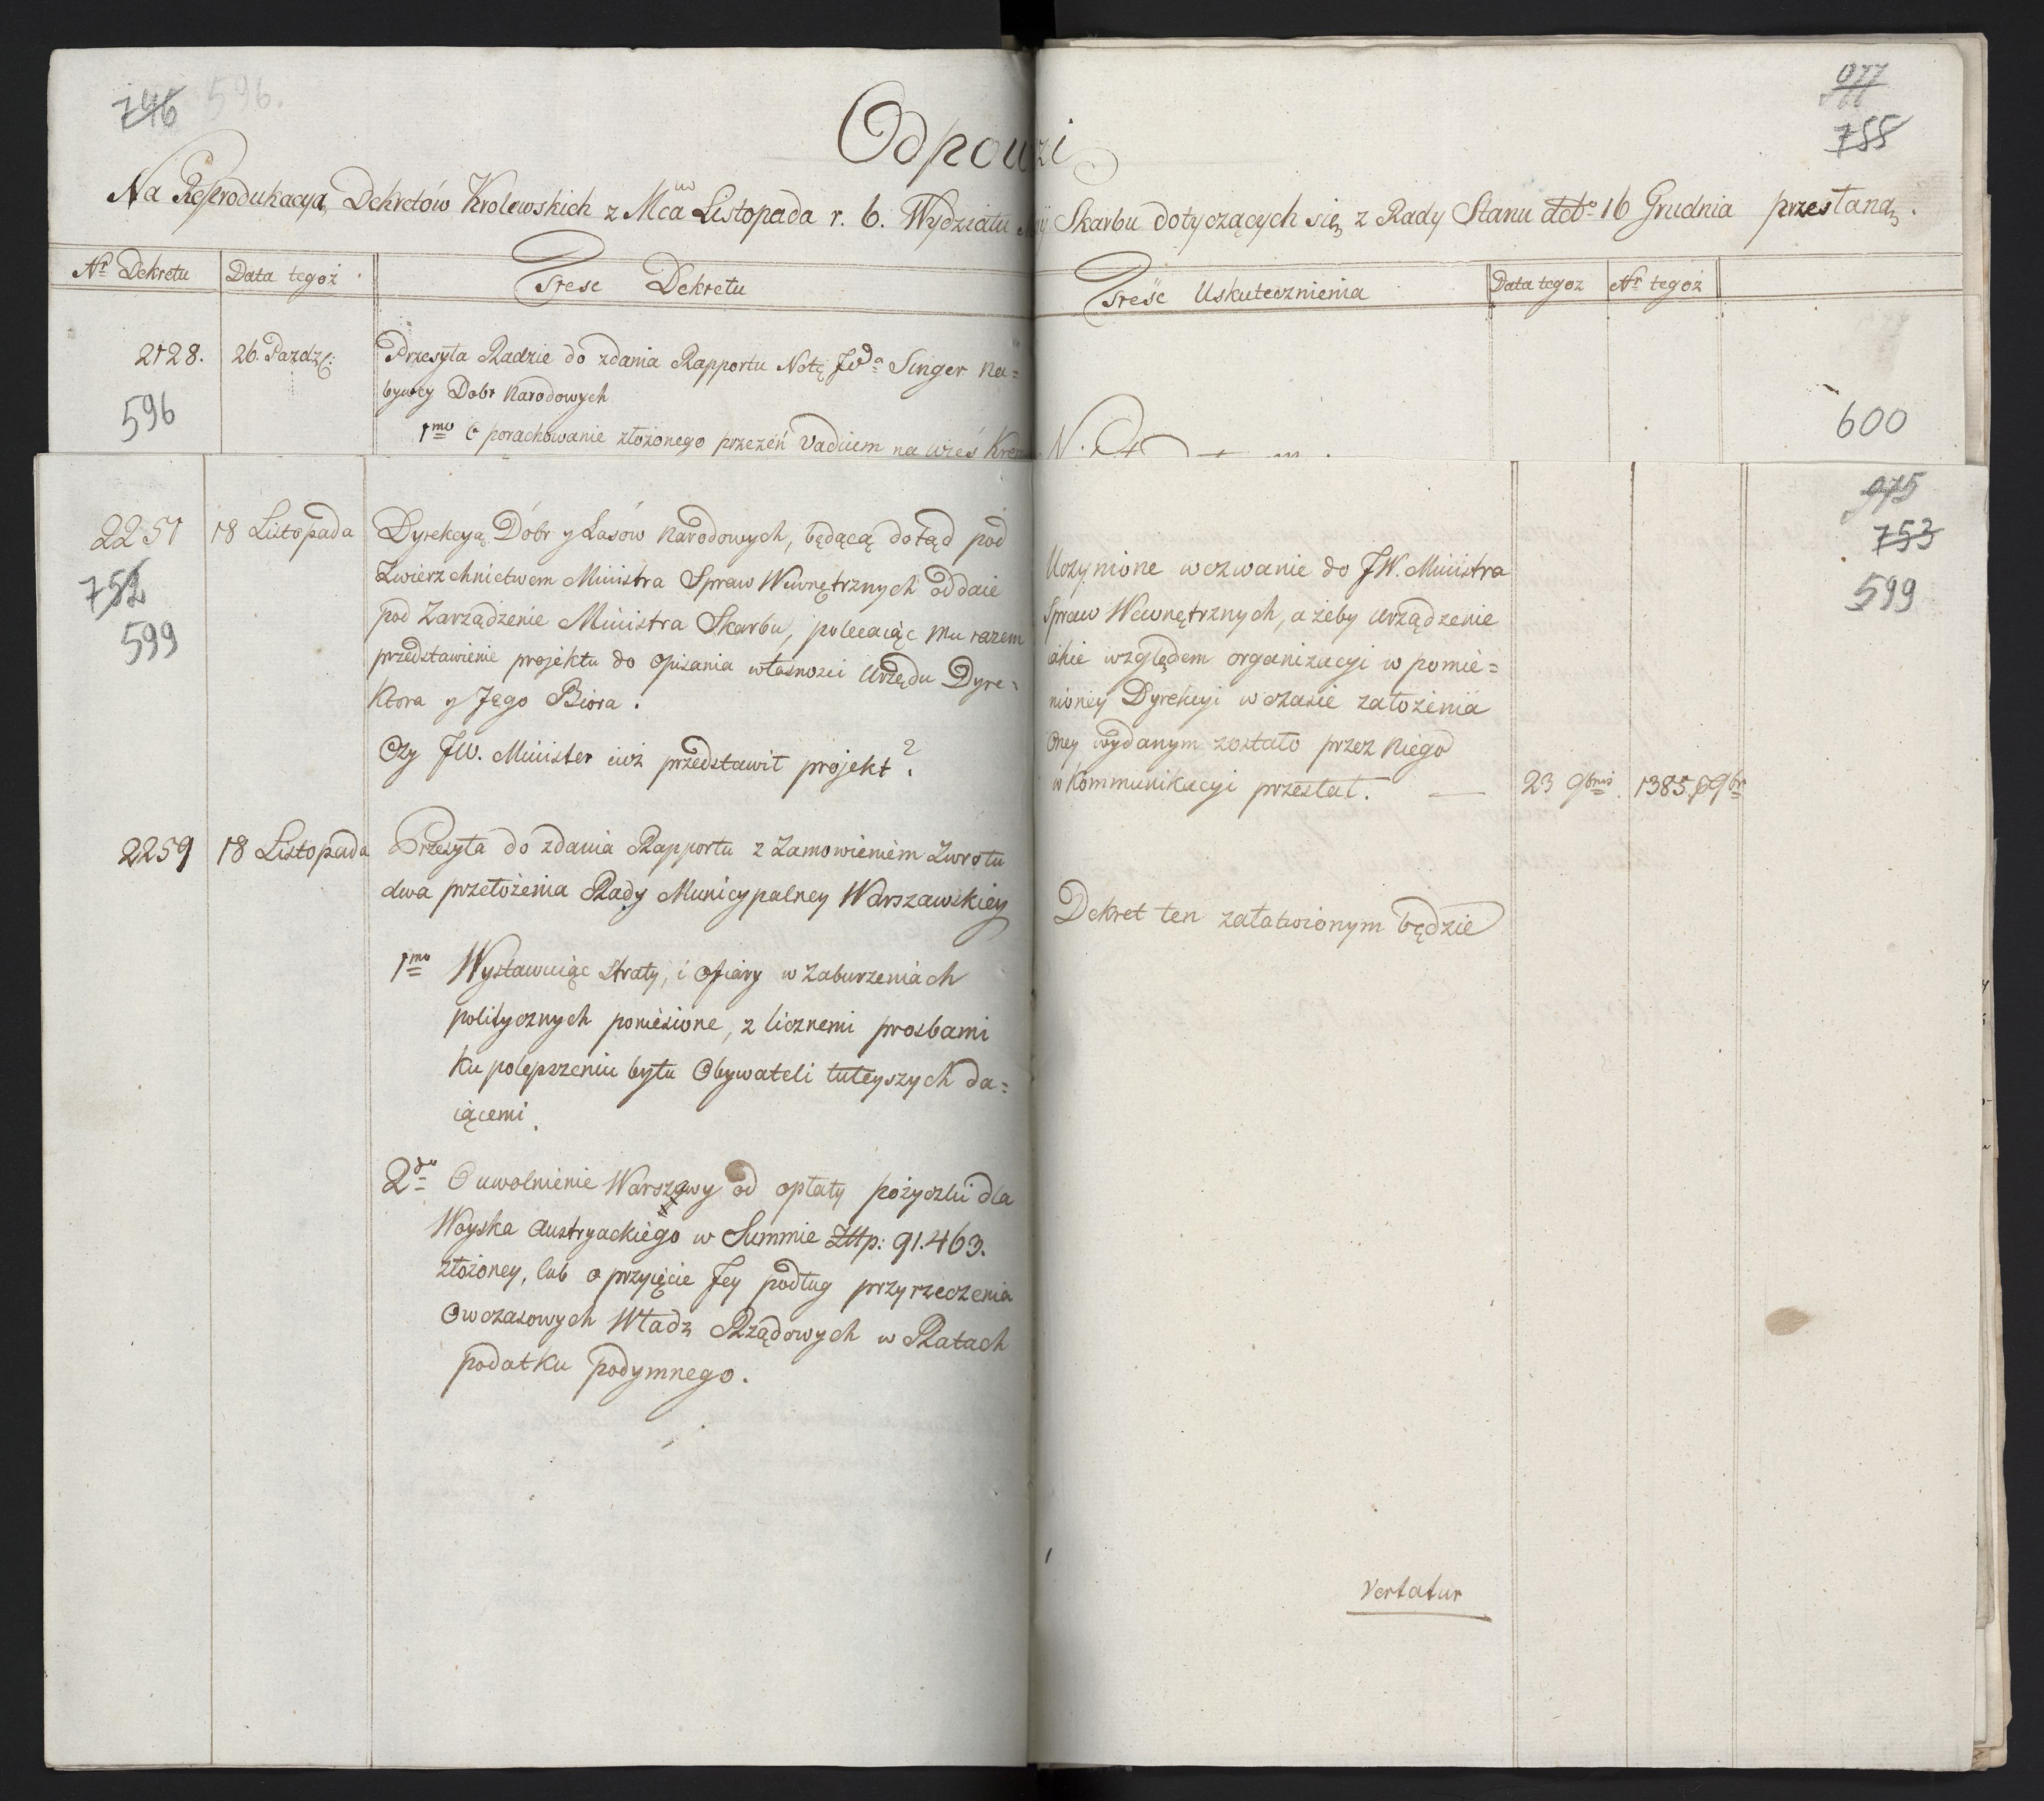 746 596.
977
755
Odpow zi
Na Reprodukacyą Dekretów Krolewskich z Mca Listopada r. b. Wydziału Skarbu dotyczących się z Rady Stanu dto 16 Grudnia przesłaną.
Nr Dekretu Data tegoż Treść Dekretu Treść Uskutecznienia Data tegoż Nr tegoż
2128. 26. Pazdz: Przesyła Radzie do zdania Rapportu Notę Singer Na=
bywcy Dobr Narodowych
596
600
1mo O porachowanie złożonego przezeń Vadium na wieś
975
753
599
2251 18 Listopada Dyrekcyą Dóbr y Lasów Narodowych, będącą dotąd pod
752
599
Zwierzchnictwem Ministra Spraw Wewnętrznych oddaie
pod Zarządzenie Ministra Skarbu, polecaiąc mu razem
przedstawienie projektu do opisania własności Urzędu Dyre=
ktora y Jego Biora.
Czy JW. Minister iuż przedstawił projekt?
Uczynione wezwanie do JW. Ministra
Spraw Wewnętrznych, ażeby Urządzenie
iakie względem organizacyi w pomie=
nioney Dyrekcyi w czasie założenia
Oney wydanym zostało przez Niego
w Kommunikacyi przesłał. — 23 9bris 1385. 9br
2259 18 Listopada Przesyła do zdania Rapportu z Zamowieniem Zwrotu
dwa przełożenia Rady Municypalney Warszawskiey
Dekret ten załatwionym będzie
1mo Wystawuiąc straty, i ofiary w Zaburzeniach
politycznych poniesione, z licznemi prosbami
ku polepszeniu bytu Obywateli tuteyszych da=
iącemi.
2do O uwolnienie Warszawy od opłaty pożyczki dla
Woyska Austryackiego w Summie Złtp: 91.463.
złożoney, lub o przyięcie Jey podług przyrzeczenia
Owczasowych Władz Rządowych w Ratach
podatku podymnego.
Vertatur